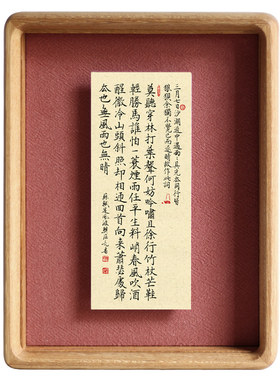 三月七日沙湖道中遇雨雨具先去同行皆
狼狽余獨不覺已而遂晴故作此詞
莫聽穿林打葉聲何妨吟嘯且徐行竹杖芒鞋
輕勝馬誰怕一蓑煙雨任平生料峭春風吹酒
醒微冷山頭斜照却相迎回首向來蕭瑟處歸
去也無風雨也無晴
蘇軾定風波